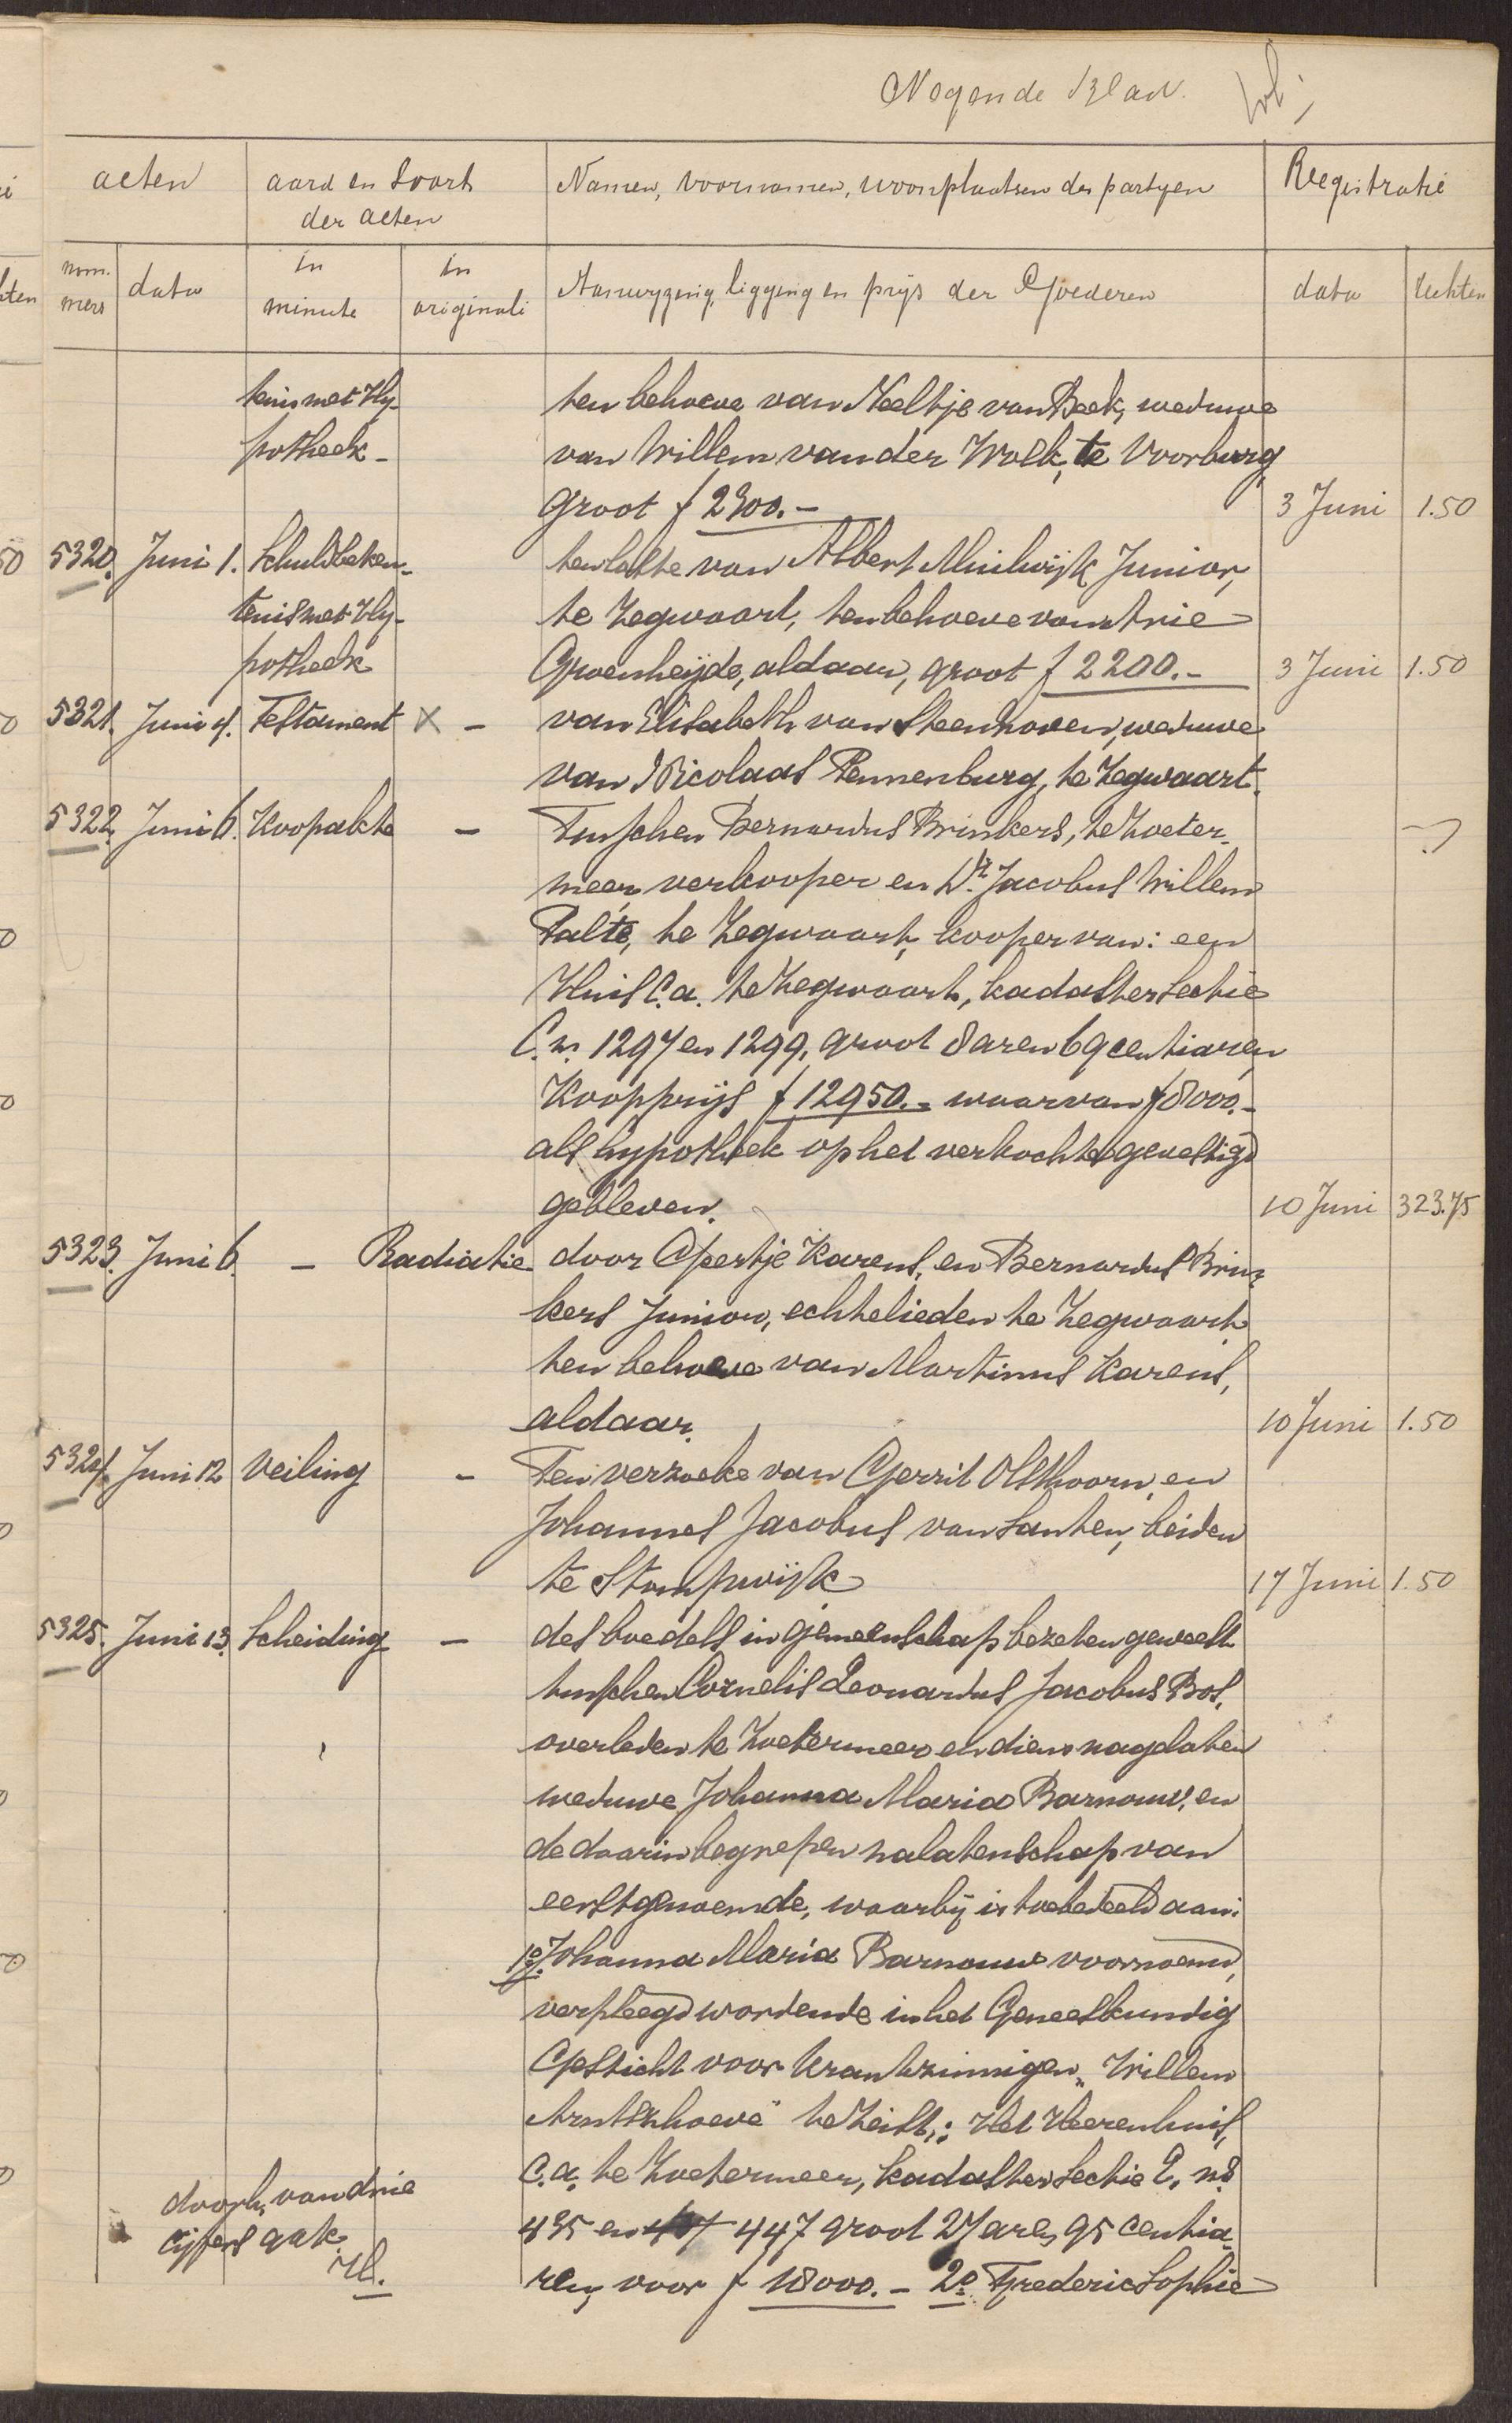 Negende Blad.
acten aard en Soort Namen, voornamen, woonplaatsen der partyen Registratie
der acten
nom. data in in Aanwyzging, ligging en prijs der Goederen data Rechten
mers minute originali
tenis met Hy- ten behoeve van Neeltje van Beek, weduwe
potheek - van Willem van der Wolk, te Voorburg,
groot f 2300.- 3 Juni 1.50
5320. Juni 1. Schuldbeken- ten laste van Albert Muilwijk Junior,
tenis met Hy- te Zegwaart, ten behoeve van Arie
potheek Groenheijde, aldaar, groot f 2200.- 3 Juni 1.50
5321. Juni 4. Testament X - van Elisabeth van Steenhoven, weduwe
van Nicolaas Pennenburg, te Zegwaart.
5322. Juni 6. Koopakte - Tusschen Bernardus Brinkers, te Zoeter-
meer, verkooper en Dr. Jacobus Willem
Palte, te Zegwaart, kooper van: een
Huis c.a. te Zegwaart, kadaster Sectie
C. n. 1297 en 1299, groot 8 aren 69 centiaren,
Koopprijs f 12950.- waarvan f 8000.-
als hypotheek op het verkochte gevestigd
gebleven. 10 Juni 323.75
5323. Juni 6. - Radiatie door Geertje Karens, en Bernardus Brin-
kers Junior, echtelieden te Zegwaart
ten behoeve van Martinus Karens,
aldaar. 10 Juni 1.50
5324. Juni 12 Veiling - Ten verzoeke van Gerrit Olsthoorn, en
Johannes Jacobus van Santen, beiden
te Stompwijk 17 Juni 1.50
5325. Juni 13. Scheiding - des boedels in gemeenschap bezeten geweest
tusschen Cornelis Leonardus Jacobus Bos,
overleden te Zoetermeer en diens nagelaten
weduwe Johanna Maria Barnouw, en
de daarin begrepen nalatenschap van
eerstgenoemde, waarbij is toebedeeld aan:
1o. Johanna Maria Barnouw voornoemd,
verpleegd wordende in het Geneeskundig
Gesticht voor Krankzinnigen „Willem
Arntszhoeve" te Zeist,: Het Heerenhuis,
c.a. te Zoetermeer, kadaster Sectie E, no.
doorh. van drie 435 en 447 groot 27 are, 95 centia-
cijfers gak.
H. ren, voor f 18000.- 2o. Frederic Sophie